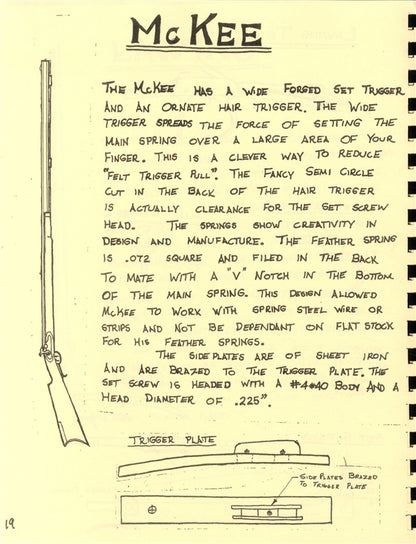 McKee
The McKee has a wide forged set trigger
and an ornate hair trigger. The wide
trigger spreads the force of setting the
main spring over a large area of your
finger. This is a clever way to reduce
"felt trigger pull". The fancy semi circle
cut in the back of the hair trigger
is actually clearance for the set screw
head. The springs show creativity in
design and manufacture. The feather spring
is .072 square and filed in the back
to mate with a "V" notch in the bottom
of the main spring. This design allowed
McKee to work with spring steel wire or
strips and not be dependant on flat stock
for his feather springs.
The sideplates are of sheet iron
and are brazed to the trigger plate. The
set screw is headed with a #4-40 body and a
head diameter of .225".
Trigger Plate
Side plates brazed
to trigger plate
19